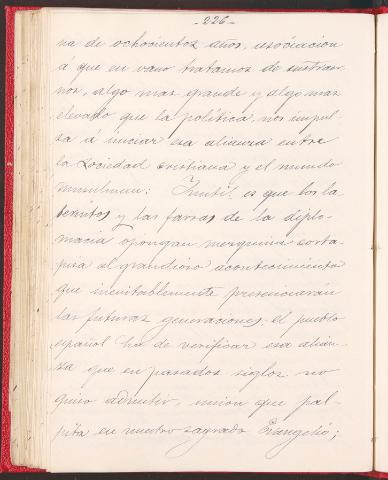 -226-
na de ochocientos años, asociacion
á que en vano tratamos de sustraer
nos, algo mas grande y algo mas
elevado que la politica, nos impul
sa á iniciar esa alianza entre
la Sociedad Cristiana y el mundo
musulman: Inutil es que los la
berintos y las farsas de la diplo-
macia opongan mezquina corta-
pisa al grandioso acontecimiento
que inevitablemente presenciarán
las futuras generaciones: el pueblo
español ha de verificar esa alian-
za que en pasados siglos no
quiso admitir, union que pal-
pita en nuestro sagrado Evangelio;